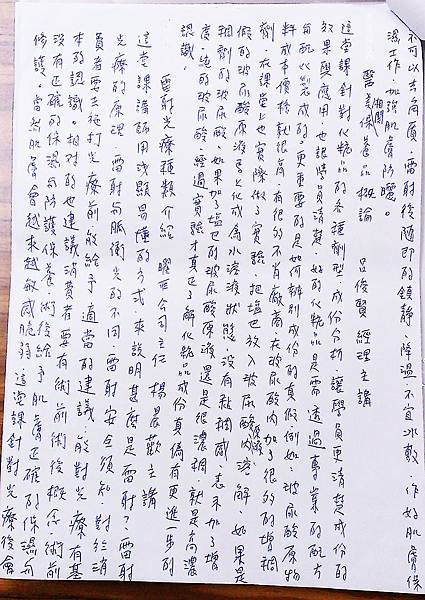 不可以去角質,雷射後隨即的鎮靜、降溫,不宜冰敷,作好肌膚保
濕工作,加強肌膚防曬。
醫美相關保養品概論 呂俊賢 經理主講
這堂課針對化妝品的各種劑型,成份分析,讓學員更清楚成份的
效果與應用也讓學員清楚,好的化妝品是需透過專業的配方
与配以製成的。更重要的是如何辨別成份的真假,例如:玻尿酸原物
料成本價格就很高,有很多不肖廠商在玻尿酸內加了很多的增稠
劑,在課堂上也實際做了實驗,把塩巴放入玻尿酸原液內溶解,如果是
假的玻尿酸原液會化成為水溶液狀態,沒有黏稠感,表示加了增
稠劑的玻尿酸。如果加了塩巴的玻尿酸原液還是很濃稠,就是高濃
度、純的玻尿酸,經過實驗才真正了解化妝品成份真偽有更進一步的
認識。
雷射光療種類介紹 曜亞公司主任 楊晨歡主講
這堂課講師用淺顯易懂的方式,來說明甚麼是雷射?雷射
光療的原理,雷射与脈衝光的不同,雷射安全須知,對於消
費者要去施打光療前能給予適當的建議,能對光療有基
本的認識。相對的也建議消費者要有術前術後概念,術前
沒有正確的保濕与防護保養,術後給予肌膚正確的保濕与
修護。當然肌膚會越來越敏感脆弱,這堂課針對光療後會